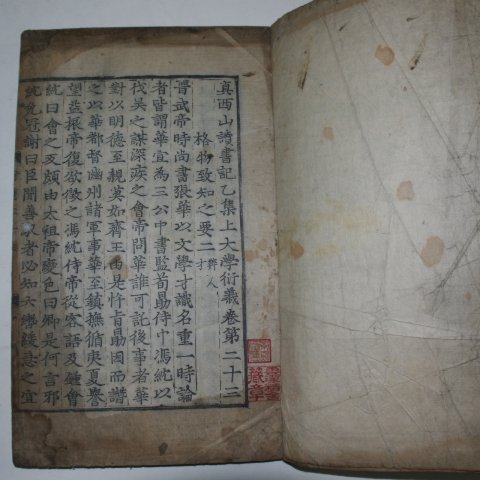 真西山讀書記乙集上大學衍義卷第二十三
格物致知之要二辨人才
晉武帝時尚書張華以文學才識名重一時論
者皆謂華宜為三公中書監荀勗侍中馮紞以
伐吳之謀深疾之會帝問華誰可託後事者華
對以明德至親莫如齊王由是忤旨勗因而譖
之以華都督幽州諸軍事華至鎮撫循夷夏譽
望益振帝復欲徵之馮紞侍帝從容語及鍾會
紞曰會之反頗由太祖帝變色曰卿是何言邪
紞免冠謝曰臣聞善馭者必知六轡緩急之宜
藏章